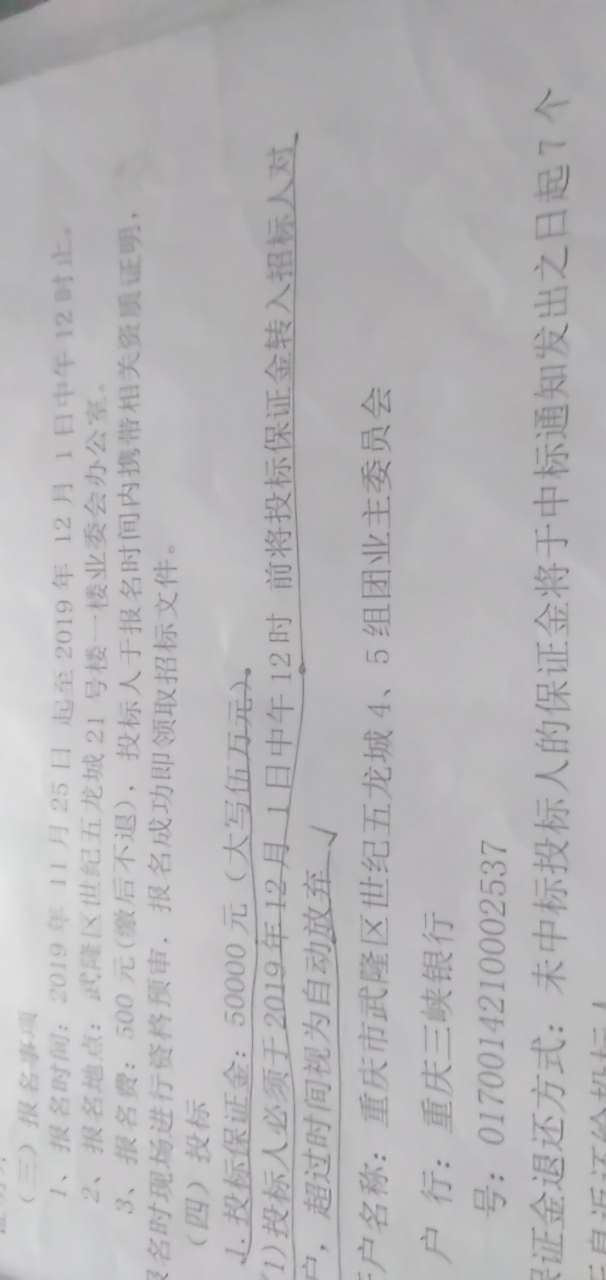 （三）报名事项
1、报名时间：2019 年 11 月 25 日 起至 2019 年 12 月 1 日中午 12 时止。
2、报名地点：武隆区世纪五龙城 21 号楼一楼业委会办公室。
3、报名费：500 元(缴后不退），投标人于报名时间内携带相关资质证明，
报名时现场进行资格预审，报名成功即领取招标文件。
（四）投标
1.投标保证金：50000 元（大写伍万元）。
(1)投标人必须于2019年12月1日中午12时 前将投标保证金转入招标人对
户，超过时间视为自动放弃
户名称：重庆市武隆区世纪五龙城 4、5 组团业主委员会
户 行：重庆三峡银行
号：0170014210002537
保证金退还方式：未中标投标人的保证金将于中标通知发出之日起 7 个